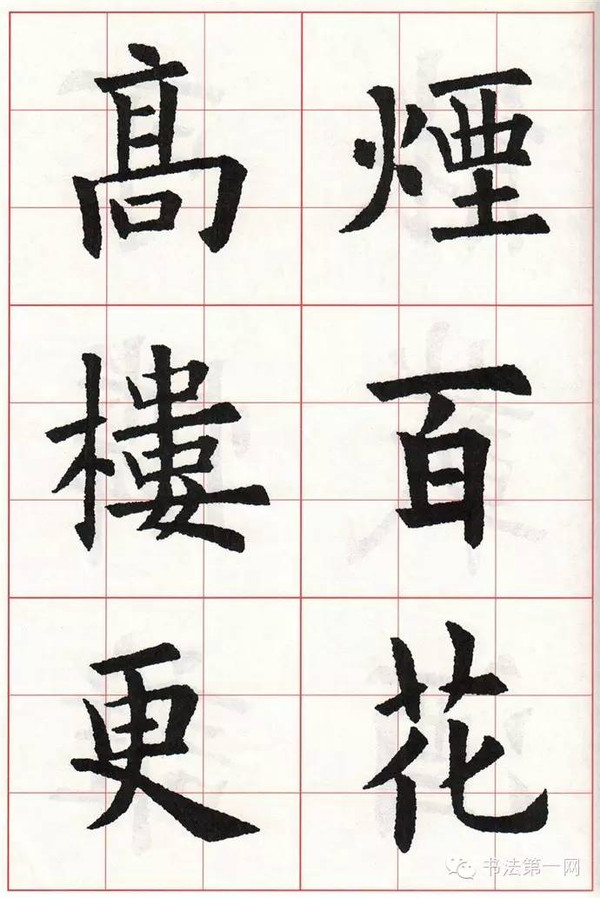 煙百花
髙樓更
书法第一网